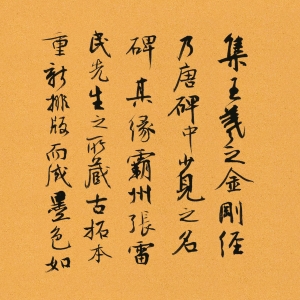 集王羲之金剛經
乃唐碑中少見之名
碑其緣霸州張雷
民先生之所藏古拓本
重新排版而成墨色如